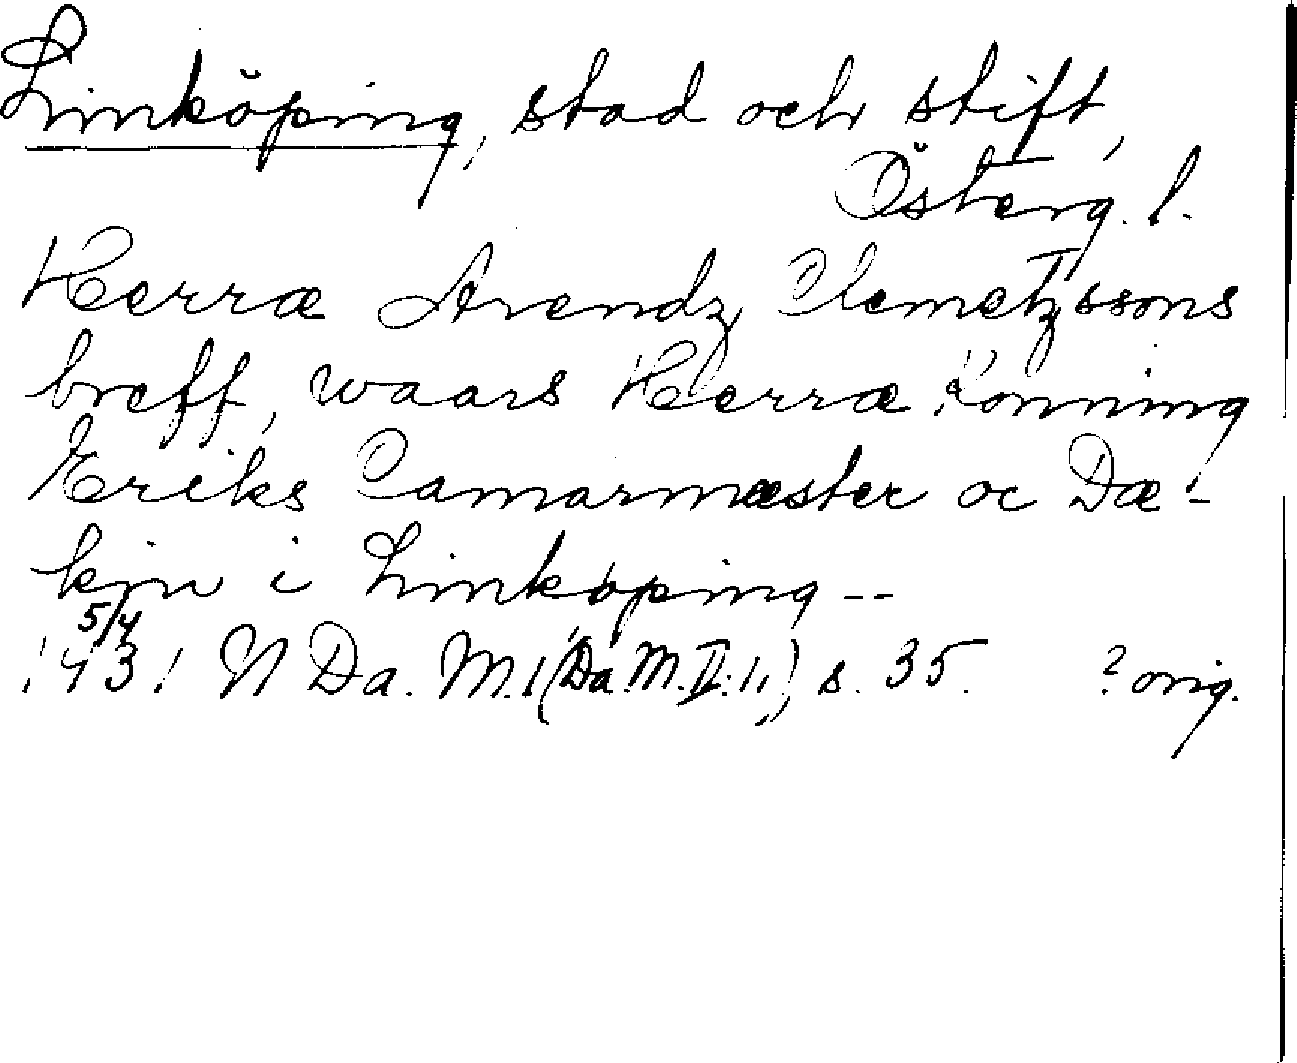 Linköping, stad och stift,
Österg. l.
Herræ Arendz Clemetzssons
breff, waars Herræ Konning
Eriks Camarmæster oc Dæ-
kin i Linköping --
5/4
1431 N Da. M. 1 (Da. M. II: 1,) s. 35. ? orig.